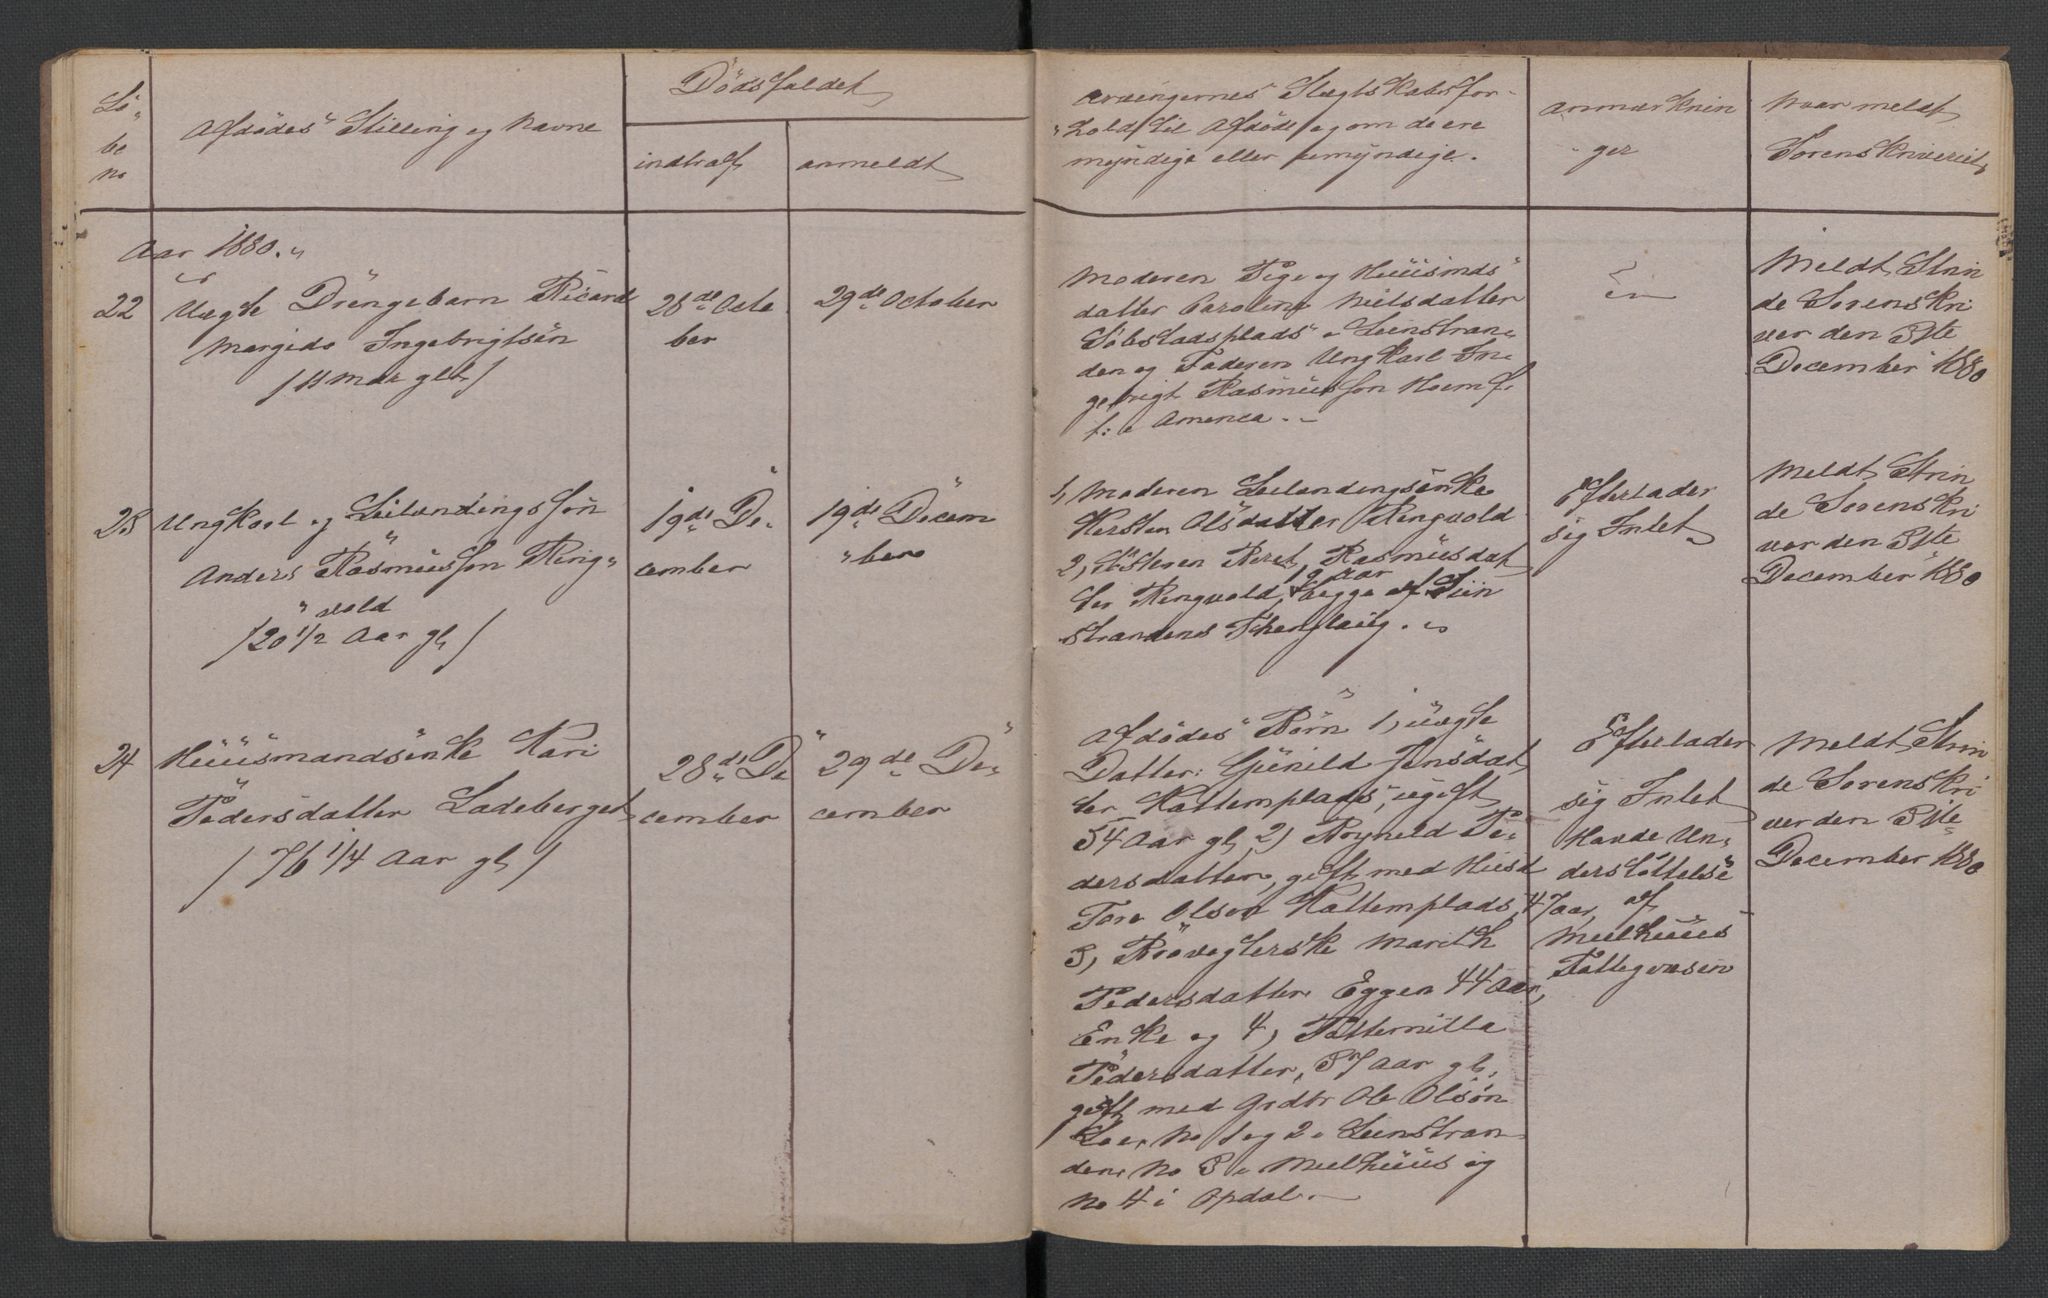 Lö-
be
no
Afdödes Stilling og Navne
Dödsfaldet
indtraf
anmeldt
Arvingernes Slægtskabsfor-
hold til Afdöde og om de ere
myndige eller umyndige.
Anmærknin
ger
Naar meldt
Sorenskriveriet
Aar 1880.
22
Uægte Drengebarn Ricard
Ingebrigtsön
28de Octo
ber
29de October
Moderen Pige og Huusmds
datter Caroline Nielsdatter
plads i Leinstran-
den og Faderen Ungkarl In-
gebrigt Rasmusson Hoem f.
t: i America
Meldt Strin
de Sorenskri
ver den 31te
December 1880
23
Ungkarl og Leilendingssön
Anders Rasmusson Ring-
vold
/20 1/2 Aar gl/
19de De-
cember
19de Decem
ber
1, Moderen Leilendingsenke
Kersten Olsdatter Ringvold
2, Sösteren Beret Rasmusdat
ter Ringvold, 12 aar begge af Lein
strandens Thinglaug.
Efterlader
sig Intet
Meldt Strin
de Sorenskri
ver den 31te
December 1880
24
Huusmandsenke Kari
Pedersdatter Ladeberget
/76 1/4 Aar gl/
28de De
cember
29de De-
cember
Afdödes Börn 1, uægte
Datter: Gunild Jensdat
ter Kattemplads, ugift
54 Aar gl, 2) Brynild Pe-
dersdatter, gift med Husd
Tore Olsen Kattemplads, 47 aar,
3, Marith
Pedersdatter Eggen 44 Aar,
Enke og 4,
Pedersdatter, 37 Aar gl,
gift med Grdbr Ole Olsön
Loe, No 1 og 2 i Leinstran-
den, No 3 i Meelhuus og
No 4 i Opdal.
Efterlader
sig Intet
Havde Un-
derstöttelse
af
Meelhuus
Fattigvæsen
Meldt Strin
de Sorenskri
ver den 31te
December 1880